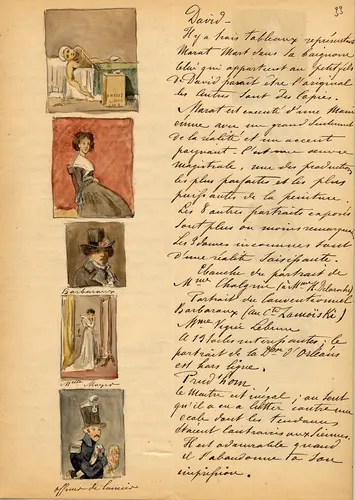 33
David —
Il y a trois tableaux représentant
Marat Mort dans la baignoire
Celui qui appartient au petit fils
de David paraît être l'original
les autres sont des copies.
Marat est exécuté d'une main
avec un grand sentiment
de la réalité et un accent
poignant. C'est une œuvre
magistrale, une des productions
les plus parfaites et les plus
puissantes de la peinture.
Les 8 autres portraits exposés
sont plus ou moins remarqués
Les 3 dames inconnues sont
d'une réalité saisissante.
Ebauche du portrait de
Mme Chalgrin (à Mr
Portrait du Conventionnel
Barbaroux (au Cte Zamoïski)
Mme Vigée Lebrun
a 13 toiles interessantes; le
portrait de la D d'Orléans
est hors ligne.
Prud'hon
le Maître est inégal; on sent
qu'il a eu à lutter contre une
ecole dont les tendances
étaient contraires aux siennes.
Il est admirable quand
il s'abandonne à son
impression.
A MARAT
Barbaroux
Melle Mayer
officier de lanciers